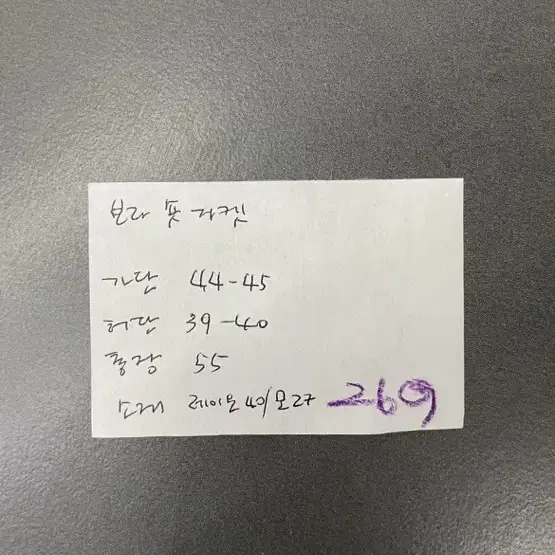 보라 숏 자켓
가단 44-45
허단 39-40
총장 55
소재 레이온40/모27 269